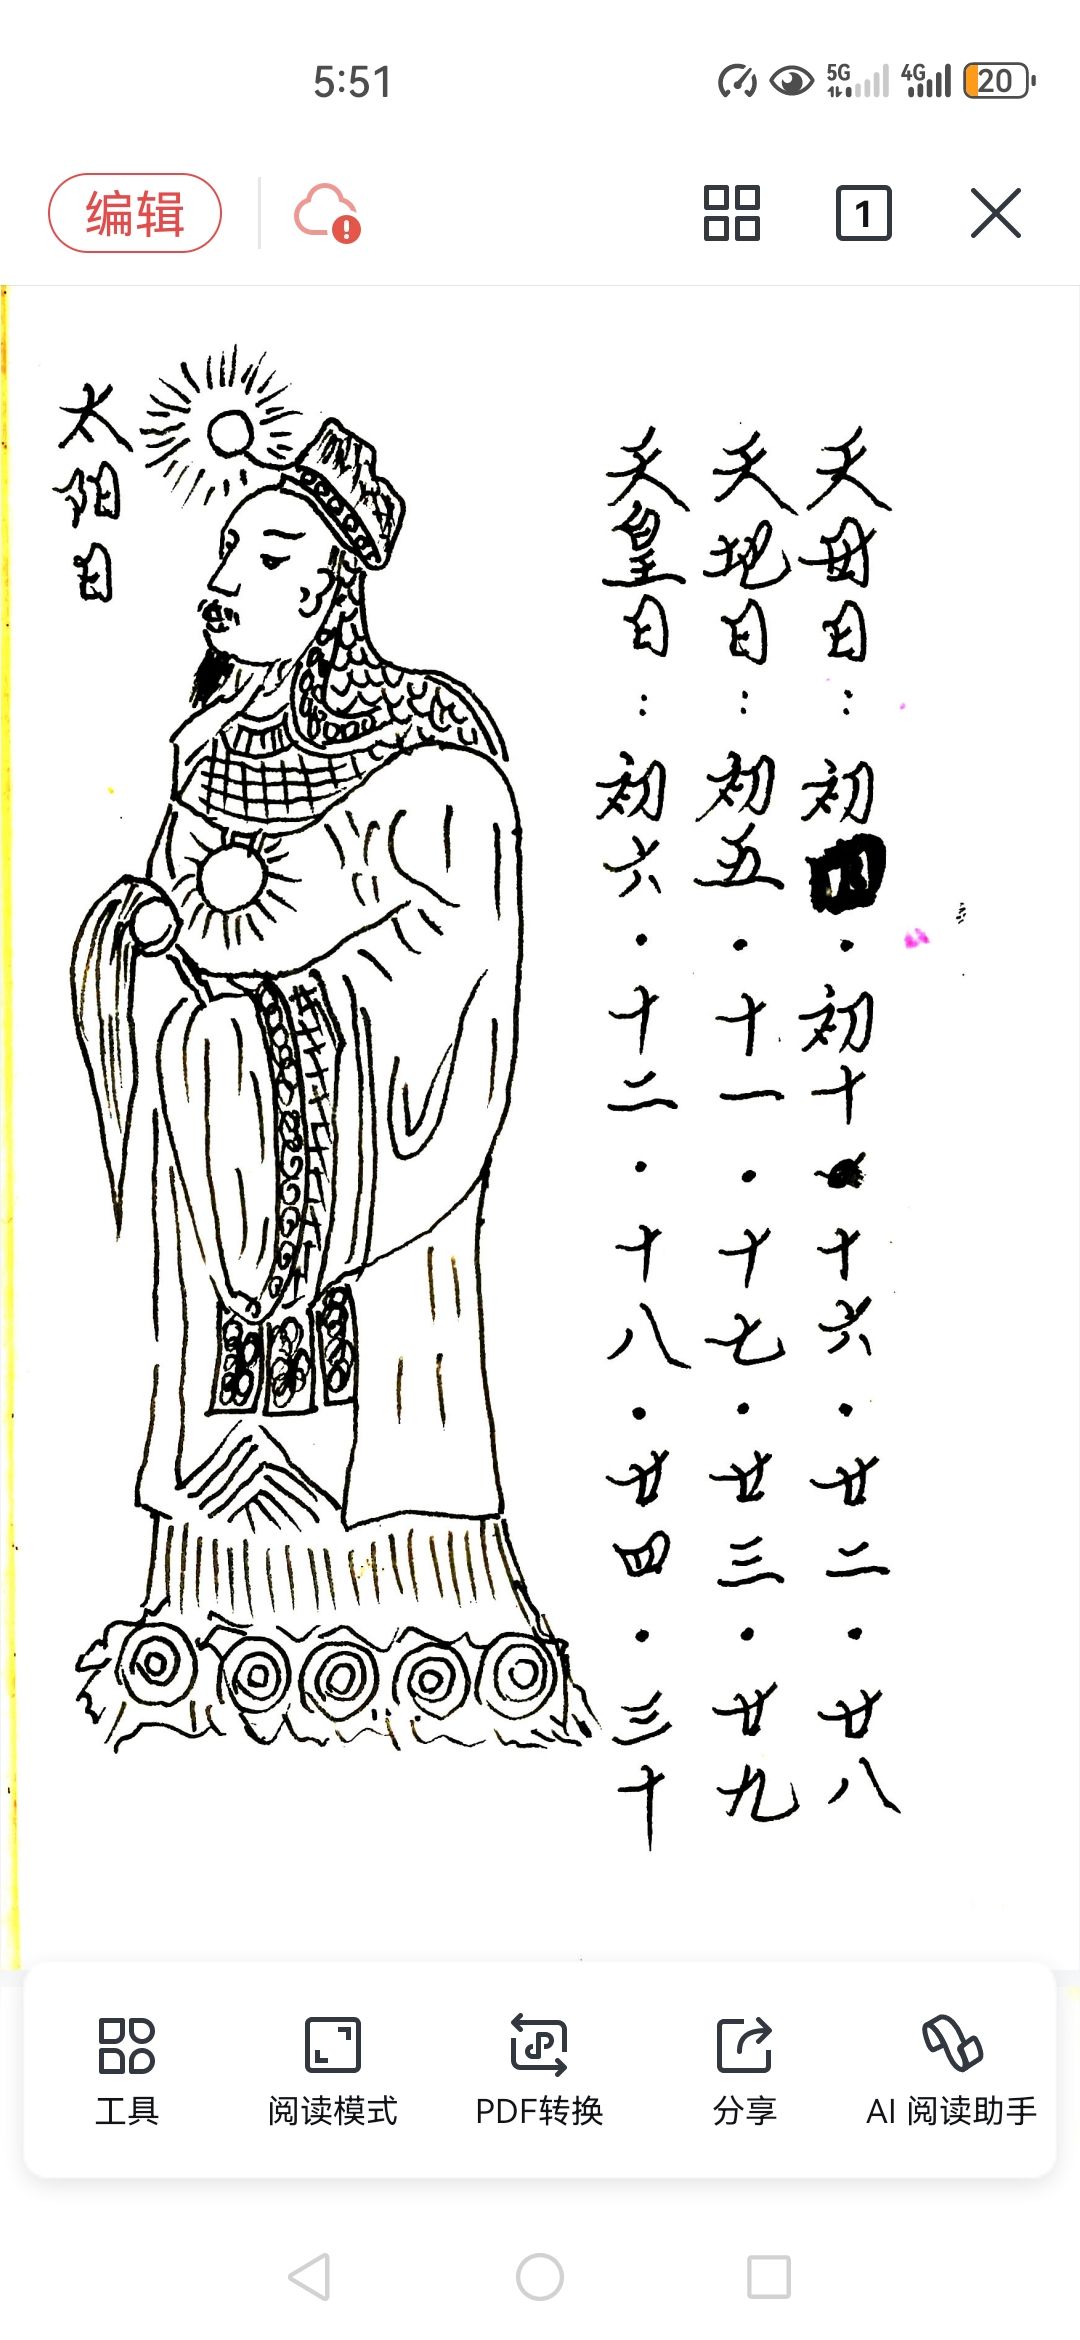 5:51
5G
4G
20
编辑
1
天母日：初四·初十·十六·廿二·廿八
天地日：初五·十一·十七·廿三·廿九
天皇日：初六·十二·十八·廿四·三十
太阳日
工具
阅读模式
PDF转换
分享
AI 阅读助手